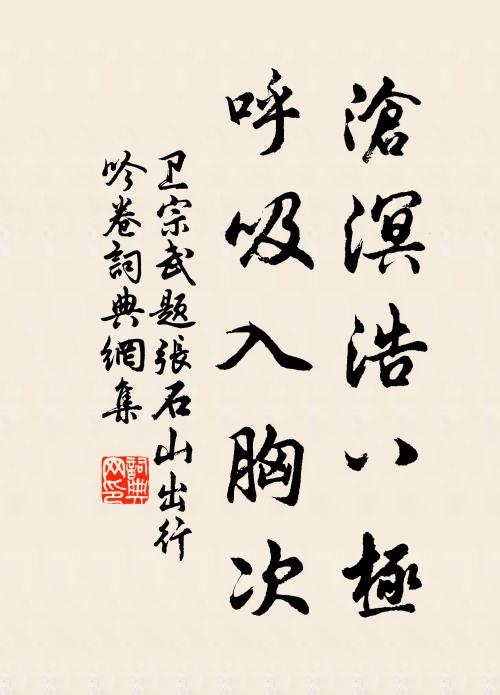 滄溟浩八極
呼吸入胸次
卫宗武题張石山出行
吟卷詞典網集
詞典
网印